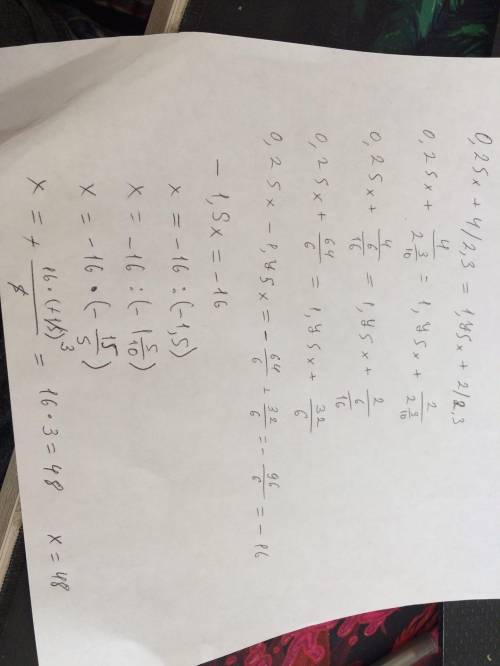 0,25x + 4/2,3 = 1,45x + 2/2,3
0,25x + 4/(2 3/10) = 1,45x + 2/(2 3/10)
0,25x + 4/(6/16) = 1,45x + 2/(6/16)
0,25x + 64/6 = 1,45x + 32/6
0,25x - 1,45x = - 64/6 + 32/6 = - 96/6 = - 16
- 1,5x = - 16
x = - 16 : (- 1,5)
x = - 16 : (- 1 5/10)
x = - 16 · (- 15/5)
x = + = 16 · 3 = 48 x = 48